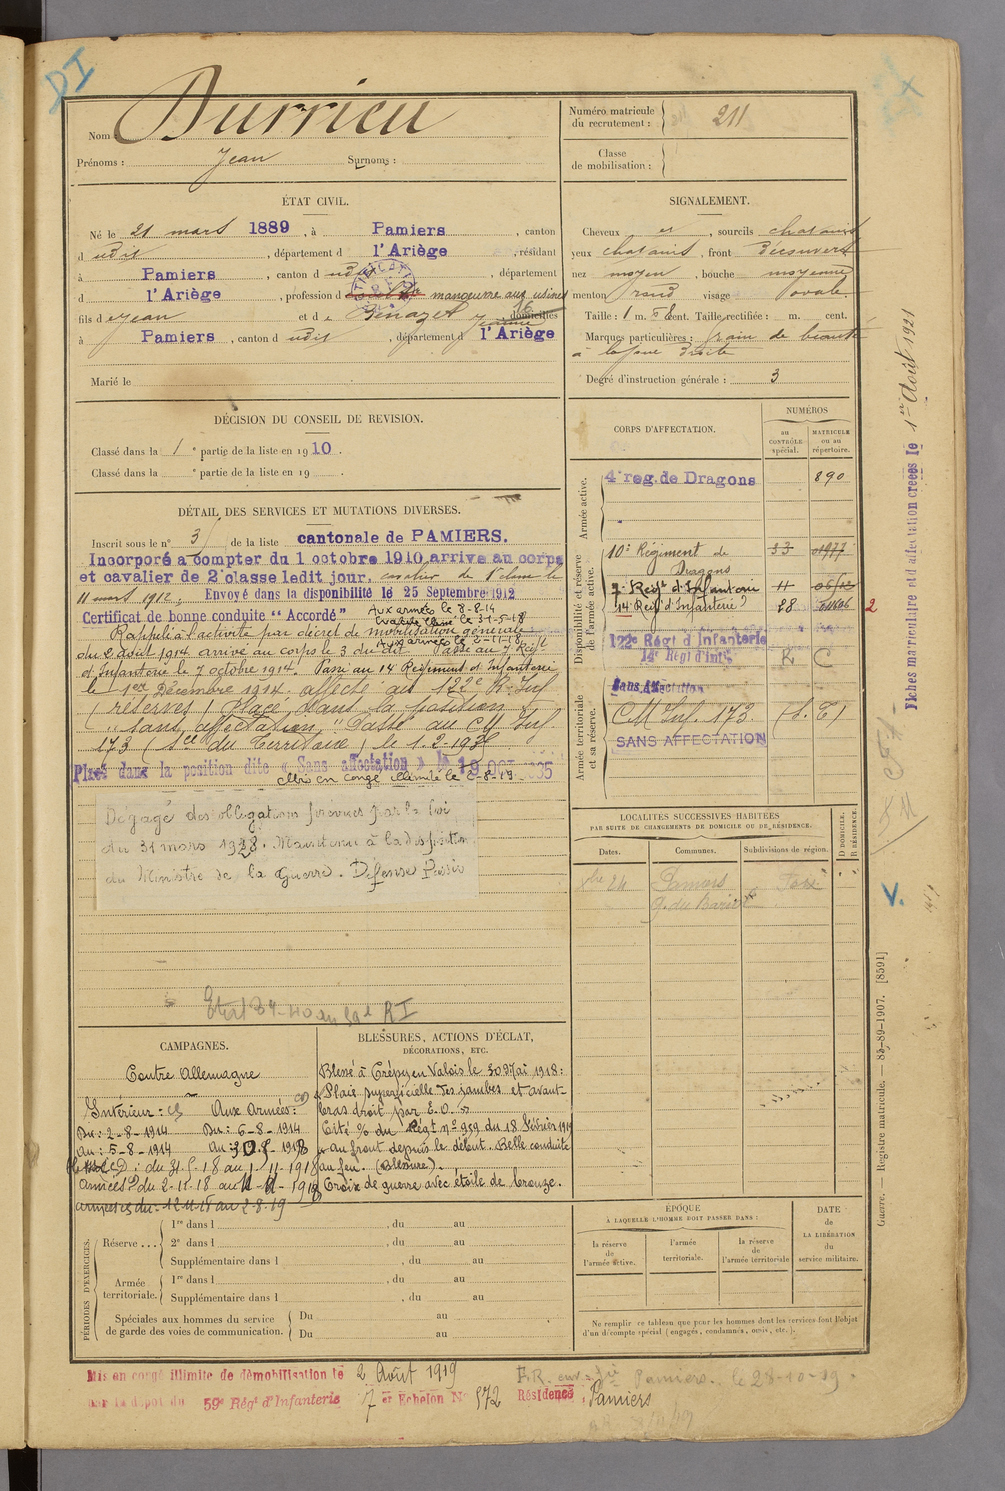 DI
Nom Durrieu
Prénoms : Jean Surnoms :
Numéro matricule du recrutement : 211
Classe de mobilisation :
ÉTAT CIVIL.
Né le 21 mars 1889, à Pamiers, canton
d udit, département d l'Ariège, résidant
à Pamiers, canton d udit, département
d l'Ariège, profession d manœuvre aux usines
fils d e Jean et d e domiciliés
à Pamiers, canton d udit, département d l'Ariège
Marié le
SIGNALEMENT.
Cheveux et, sourcils chatains
yeux chatains, front découvert
nez moyen, bouche moyenne
menton rond visage ovale.
Taille : 1 m. cent. Taille rectifiée : m. cent.
Marques particulières : grain de beauté
à la joue droite
Degré d'instruction générale : 3
DÉCISION DU CONSEIL DE REVISION.
Classé dans la 1e partie de la liste en 1910.
Classé dans la e partie de la liste en 19 .
DÉTAIL DES SERVICES ET MUTATIONS DIVERSES.
Inscrit sous le n° 3 de la liste cantonale de PAMIERS.
Incorporé à compter du 1 octobre 1910, arrivé au corps
et cavalier de 2e classe ledit jour. cavalier de 1e classe le
11 mars 1912. Envoyé dans la disponibilité le 25 Septembre 1912
Certificat de bonne conduite "Accordé"
Aux armées le 8-8-14
le 31-5-18
Aux armées le 2-11-18
Rappelé à l'activité par décret de mobilisation générale
du 2 août 1914. arrivé au corps le 3 du dit. Passé au 7 Régt
d'Infanterie le 7 octobre 1914. Passé au 14 Régiment d'Infanterie
le 1er Décembre 1914. affecté au 122e R. Inf
(réserves) Placé dans la position
"sans affectation" Passé au CM Inf
173 (Sce du Territoire) le 1-2-19
Placé dans la position dite « Sans affectation » le 19 OCT
Mis en congé illimité le 2-8-19.
Dégagé des obligations prévues par la loi
du 31 mars 1928. Maintenu à la disposition
du Ministre de la Guerre. Défense Passive
CORPS D'AFFECTATION.
NUMÉROS
au CONTRÔLE spécial.
MATRICULE ou au répertoire.
Armée active.
4e reg. de Dragons 890
Disponibilité et réserve de l'armée active.
10e Régiment de Dragons 33
7e Régt d'Infanterie 11
14 Régt d'Infanterie 28
2
122e Régt d'Infanterie
14e Régt d'Inf
R C
Armée territoriale et sa réserve.
Sans Affectation
C M Inf. 173. (S. T)
SANS AFFECTATION
LOCALITÉS SUCCESSIVES HABITÉES
PAR SUITE DE CHANGEMENTS DE DOMICILE OU DE RÉSIDENCE.
Dates. Communes. Subdivisions de région. D DOMICILE. R RÉSIDENCE.
Xbre 24 Pamiers Foix
CAMPAGNES.
Contre Allemagne
Intérieur : Aux Armées :
Du : 2-8-1914 Du : 6-8-1914
Au : 5-8-1914
du 31.5-18 au 1-11-1918
Armées du 2-11-18 au 11-11-1918
armées du 12-11-18 au 2-8-19
BLESSURES, ACTIONS D'ÉCLAT,
DÉCORATIONS, ETC.
Blessé à Crépy en Valois le 30 Mai 1918 :
Plaie superficielle des jambes et avant-
bras droit par E. O.
Cité % du Régt n° 959 du 18 février 1919
au front depuis le début. Belle conduite
au feu. (Blessure).
Croix de guerre avec étoile de bronze.
PÉRIODES D'EXERCICES.
Réserve ...
1re dans l , du au
2e dans l , du au
Supplémentaire dans l , du au
Armée territoriale.
1re dans l , du au
Supplémentaire dans l , du au
Spéciales aux hommes du service
de garde des voies de communication.
Du au
Du au
ÉPOQUE
À LAQUELLE L'HOMME DOIT PASSER DANS :
la réserve de l'armée active.
l'armée territoriale.
la réserve de l'armée territoriale
DATE de LA LIBÉRATION du service militaire.
Ne remplir ce tableau que pour les hommes dont les services font l'objet
d'un décompte spécial (engagés, condamnés, omis, etc.).
Mis en congé illimité de démobilisation le 2 Août 1919
par le dépôt du 59e Régt d'Infanterie 7 er Echelon N° 572 Résidence : Pamiers
Pamiers. le 28-10-19.
Fiches matriculaire et d'affectation créées le 1er Août 1921
V.
Guerre. — Registre matricule. — 83-89-1907. [8591]